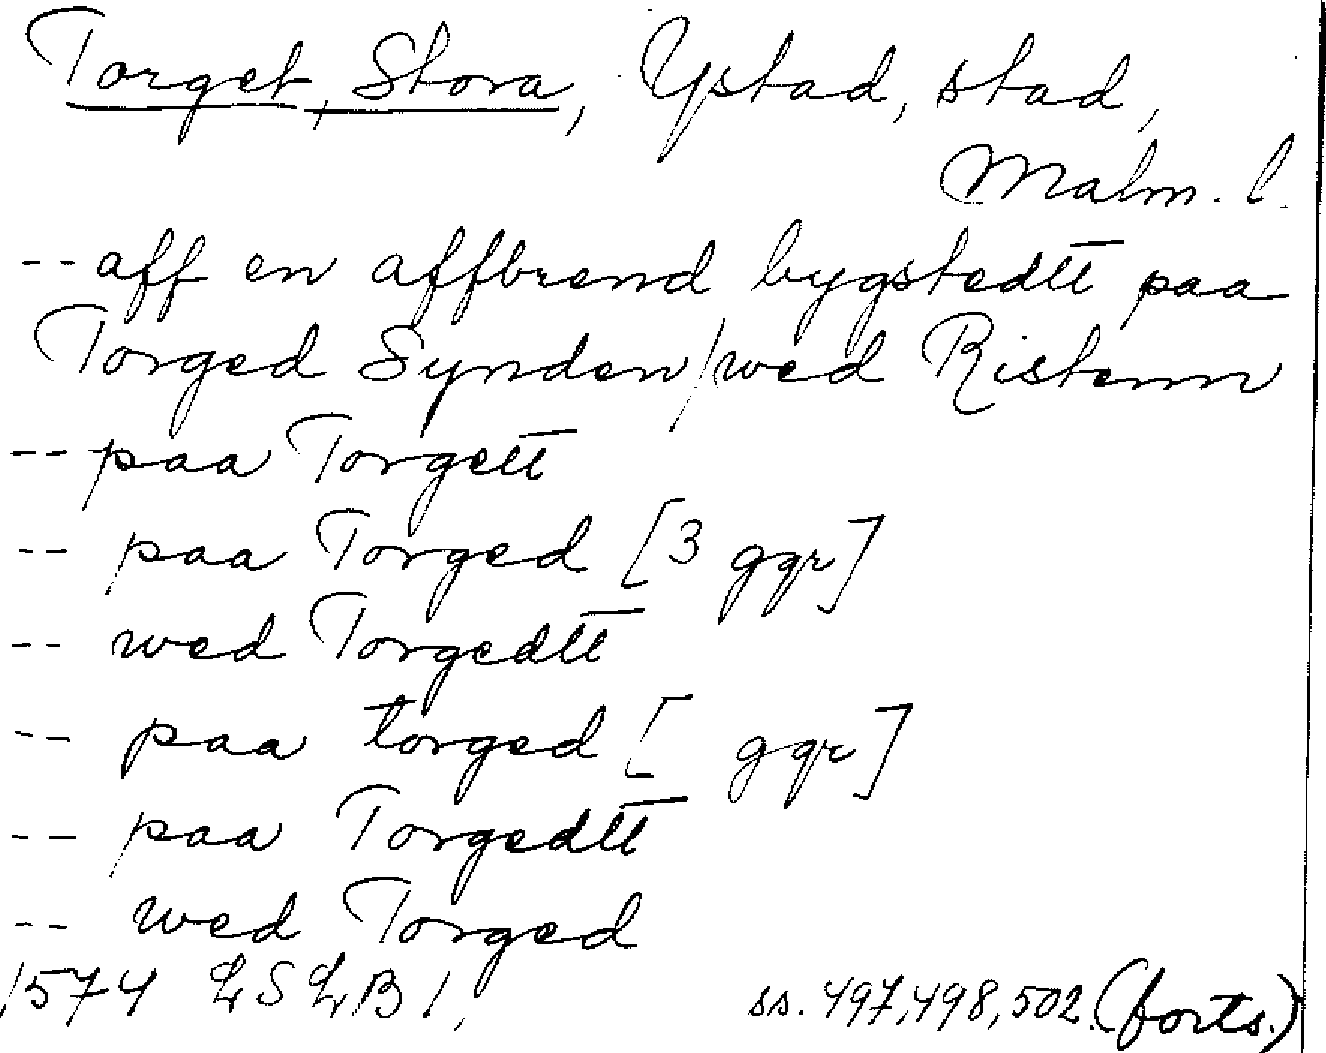 Torget, Stora, Ystad, stad,
Malm. l.
-- aff en affbrend bygstedtt paa
Torged Synden/wed Ristenn
-- paa Torgett
-- paa Torged [3 ggr]
-- wed Torgedtt
-- paa torged [ ggr]
-- paa Torgedtt
-- wed Torged
1574 LSLB 1, ss. 497, 498, 502. (forts.)